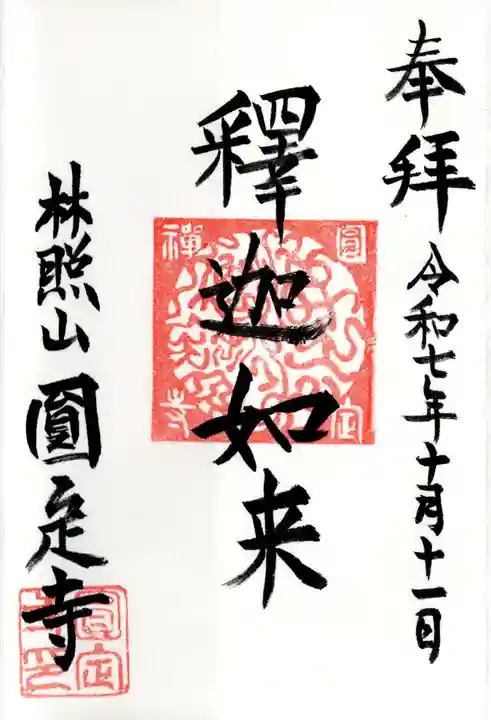 奉拝 令和七年十月十一日
釋迦如来
圓定禅寺
林照山 圓定寺
圓定寺印